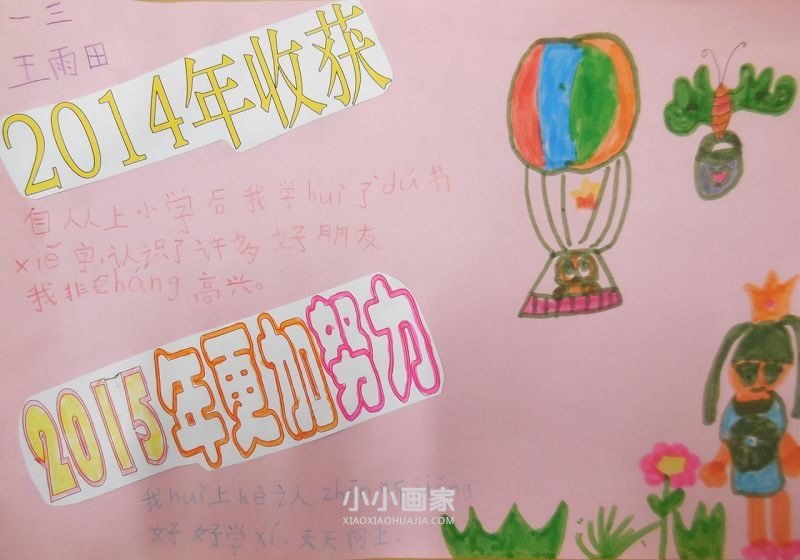 一.三
王雨田
2014年收获
自从上小学后我学huì了dú书
xiě字,认识了许多好朋友
我非cháng高兴。
2015年更加努力
我huì上kè认
小小画家
XIAOXIAOHUAJIA.COM
好好学xí,天天向上。